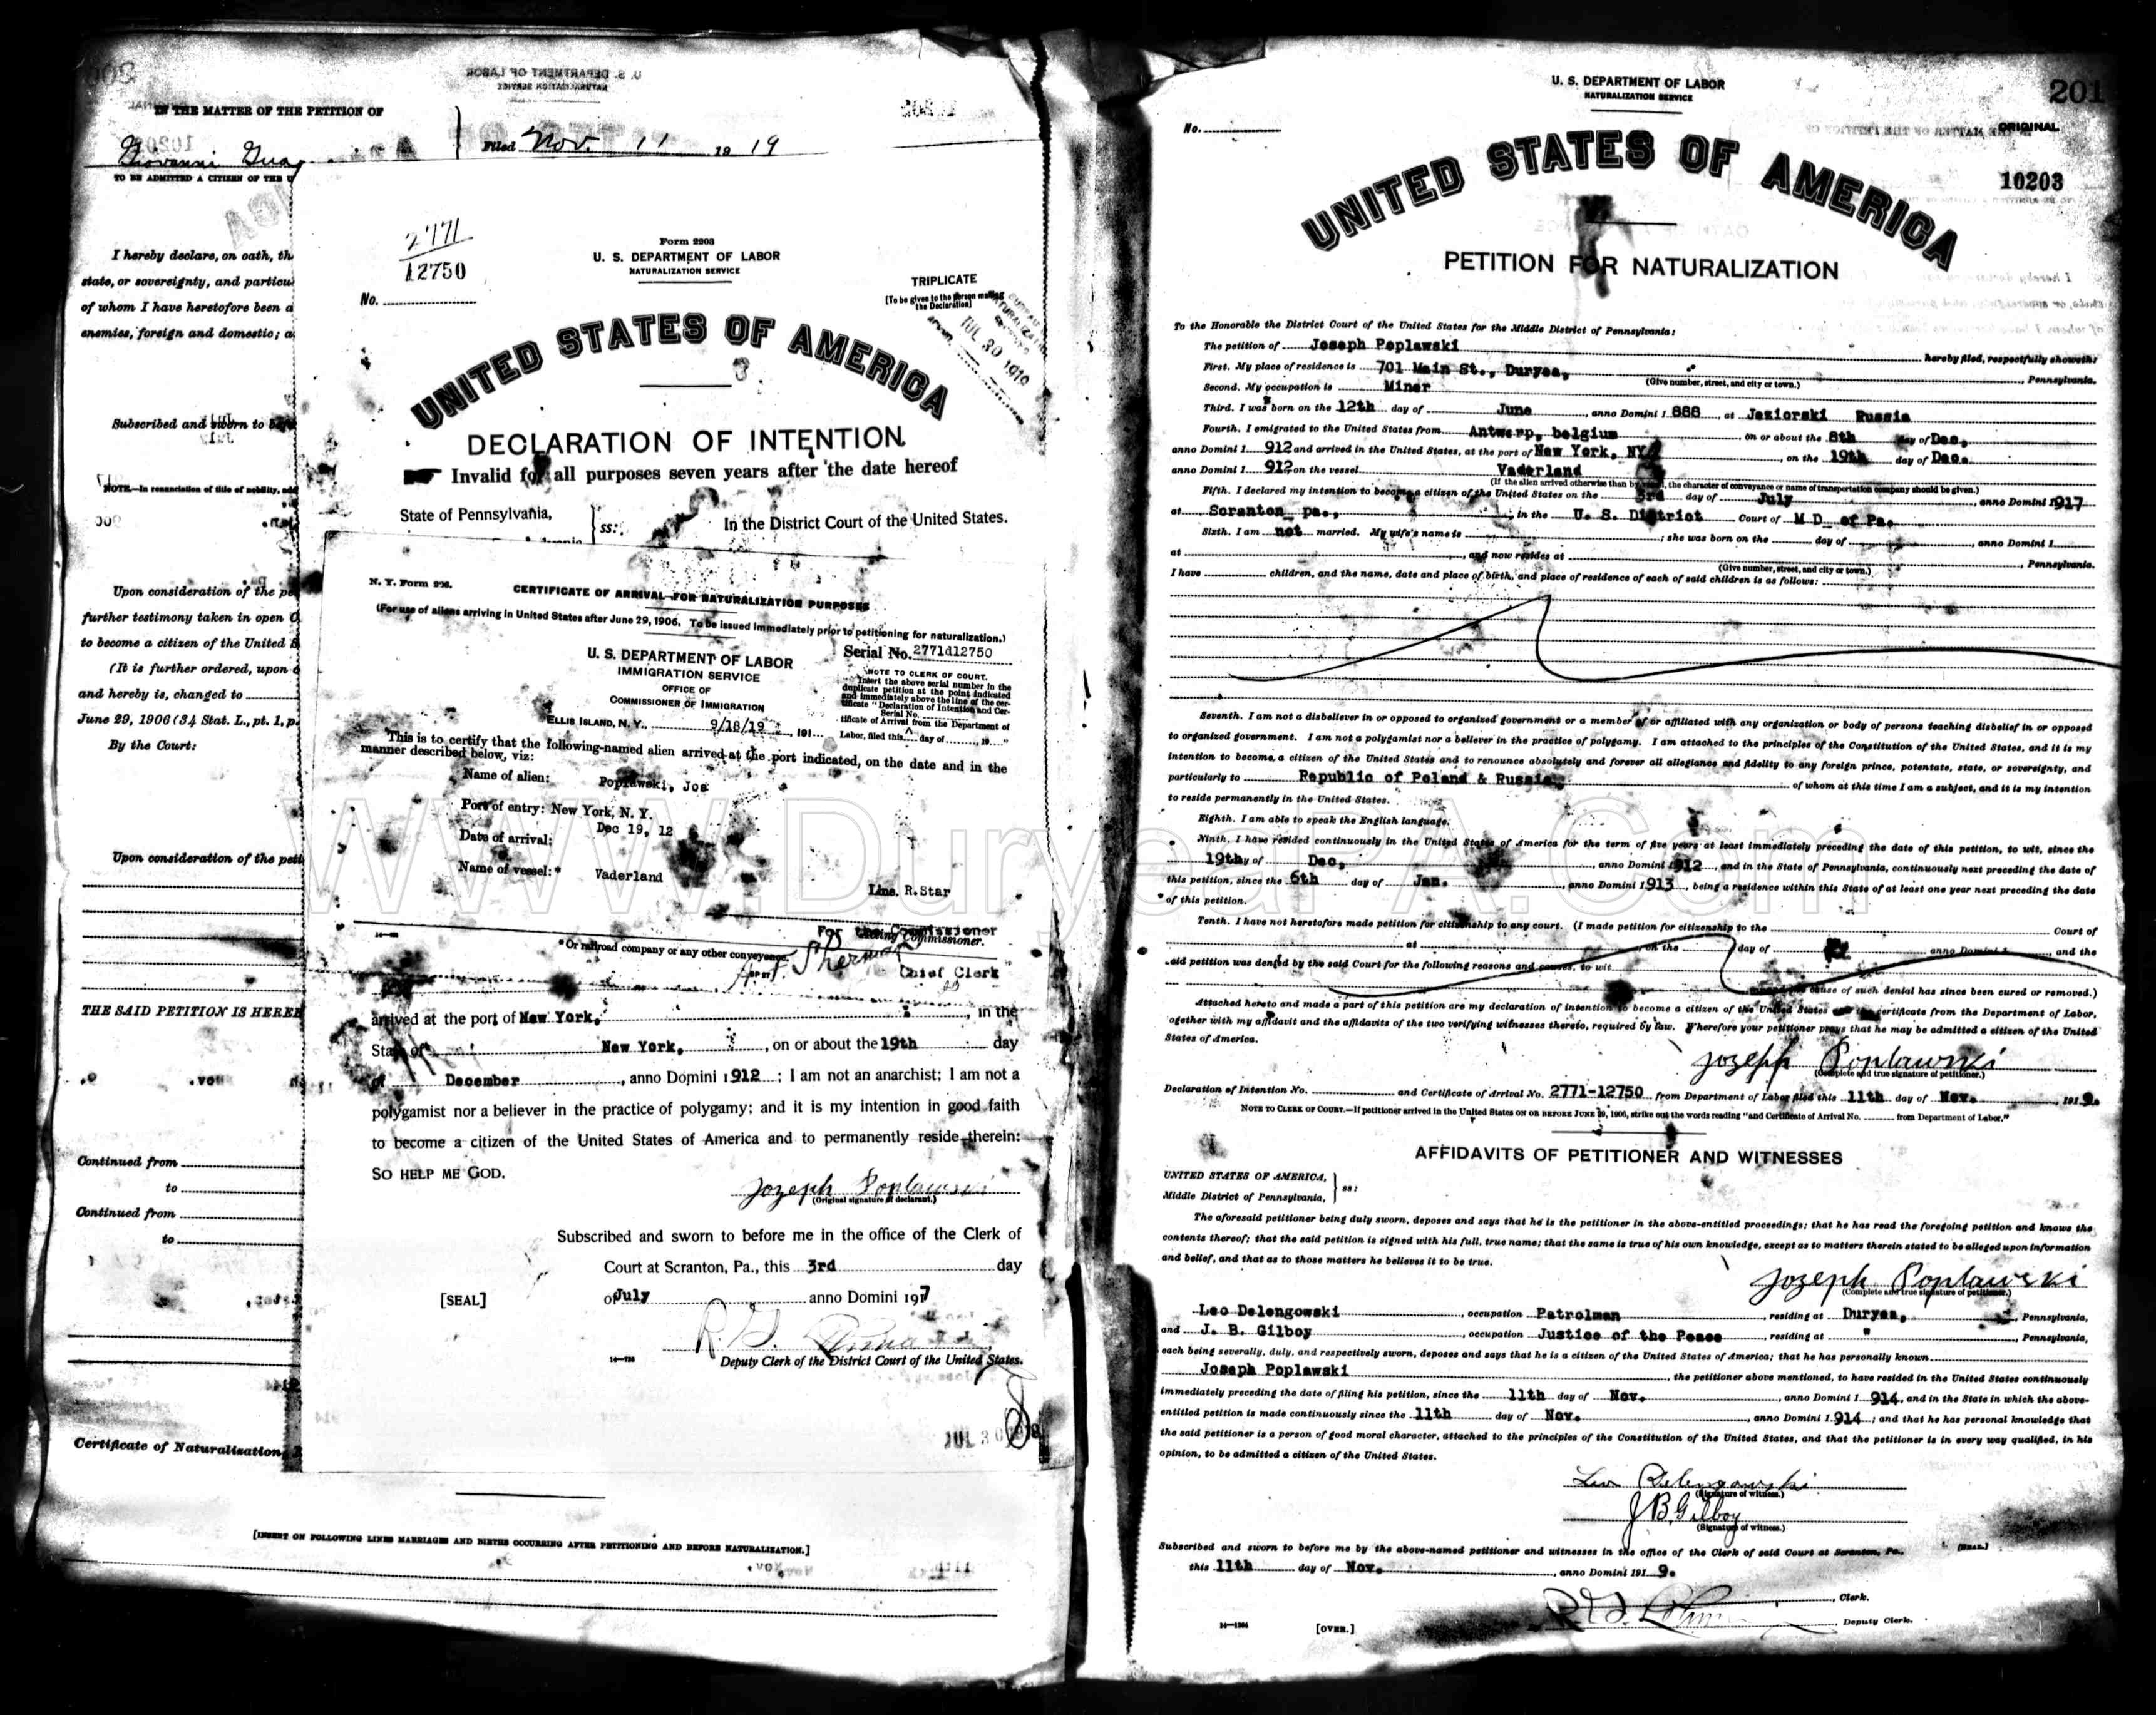 IN THE MATTER OF THE PETITION OF
Giovanni
TO BE ADMITTED A CITIZEN OF THE U
Filed Nov. 11 1919
I hereby declare, on oath, th
state, or sovereignty, and particu
of whom I have heretofore been a
enemies, foreign and domestic; a
Subscribed and sworn to
NOTE.—In renunciation of title of nobility, add
Upon consideration of the pe
further testimony taken in open C
to become a citizen of the United S
(It is further ordered, upon c
and hereby is, changed to
June 29, 1906 (34 Stat. L., pt. 1, p.
By the Court:
Upon consideration of the peti
THE SAID PETITION IS HEREB
Continued from
to
Continued from
to
Certificate of Naturalization,
[INSERT ON FOLLOWING LINES MARRIAGES AND BIRTHS OCCURRING AFTER PETITIONING AND BEFORE NATURALIZATION.]
2771
12750
No.
Form 2203
U. S. DEPARTMENT OF LABOR
NATURALIZATION SERVICE
TRIPLICATE
[To be given to the person making the Declaration]
JUL 30 1919
UNITED STATES OF AMERICA
DECLARATION OF INTENTION
Invalid for all purposes seven years after the date hereof
State of Pennsylvania,
ss:
In the District Court of the United States.
N. Y. Form 226.
CERTIFICATE OF ARRIVAL—FOR NATURALIZATION PURPOSES
(For use of aliens arriving in United States after June 29, 1906. To be issued immediately prior to petitioning for naturalization.)
U. S. DEPARTMENT OF LABOR
IMMIGRATION SERVICE
OFFICE OF
COMMISSIONER OF IMMIGRATION
Serial No. 2771d12750
NOTE TO CLERK OF COURT.
Insert the above serial number in the
duplicate petition at the point indicated
and immediately above the line of the cer-
tificate "Declaration of Intention and Cer-
Serial No.
tificate of Arrival from the Department of
Labor, filed this day of , 19 "
ELLIS ISLAND, N. Y., 9/18/19 , 191
This is to certify that the following-named alien arrived at the port indicated, on the date and in the
manner described below, viz:
Name of alien: Poplawski, Jos
Port of entry: New York, N. Y.
Date of arrival: Dec 19, 12
Name of vessel:* Vaderland
Line. R.Star
For the Commissioner
Acting Commissioner.
*Or railroad company or any other conveyance.
Sherman
Chief Clerk
arrived at the port of New York, , in the
State of New York, , on or about the 19th day
of December , anno Domini 1912 ; I am not an anarchist; I am not a
polygamist nor a believer in the practice of polygamy; and it is my intention in good faith
to become a citizen of the United States of America and to permanently reside therein:
SO HELP ME GOD.
Jozeph Poplawski
(Original signature of declarant.)
Subscribed and sworn to before me in the office of the Clerk of
Court at Scranton, Pa., this 3rd day
[SEAL]
of July anno Domini 1917
Deputy Clerk of the District Court of the United States.
JUL 30
U. S. DEPARTMENT OF LABOR
NATURALIZATION SERVICE
201
No.
ORIGINAL
10203
UNITED STATES OF AMERICA
PETITION FOR NATURALIZATION
To the Honorable the District Court of the United States for the Middle District of Pennsylvania:
The petition of Joseph Poplawski hereby filed, respectfully showeth:
First. My place of residence is 701 Main St., Duryea, , Pennsylvania.
(Give number, street, and city or town.)
Second. My occupation is Miner
Third. I was born on the 12th day of June , anno Domini 1 888 , at Jeziorski Russia
Fourth. I emigrated to the United States from Antwerp, belgium on or about the 8th day of Dec,
anno Domini 1 912 and arrived in the United States, at the port of New York, NY , on the 19th day of Dec.
anno Domini 1 912, on the vessel Vaderland
(If the alien arrived otherwise than by vessel, the character of conveyance or name of transportation company should be given.)
Fifth. I declared my intention to become a citizen of the United States on the 3rd day of July , anno Domini 1917
at Scranton pa., , in the U. S. District Court of M D of Pa.
Sixth. I am not married. My wife's name is ; she was born on the day of , anno Domini 1
at , and now resides at , Pennsylvania.
(Give number, street, and city or town.)
I have children, and the name, date and place of birth, and place of residence of each of said children is as follows:
Seventh. I am not a disbeliever in or opposed to organized government or a member of or affiliated with any organization or body of persons teaching disbelief in or opposed
to organized government. I am not a polygamist nor a believer in the practice of polygamy. I am attached to the principles of the Constitution of the United States, and it is my
intention to become a citizen of the United States and to renounce absolutely and forever all allegiance and fidelity to any foreign prince, potentate, state, or sovereignty, and
particularly to Republic of Poland & Russia of whom at this time I am a subject, and it is my intention
to reside permanently in the United States.
Eighth. I am able to speak the English language.
Ninth. I have resided continuously in the United States of America for the term of five years at least immediately preceding the date of this petition, to wit, since the
19thy of Dec, , anno Domini 1912 , and in the State of Pennsylvania, continuously next preceding the date of
this petition, since the 6th day of Jan. , anno Domini 1913 , being a residence within this State of at least one year next preceding the date
of this petition.
Tenth. I have not heretofore made petition for citizenship to any court. (I made petition for citizenship to the Court of
at , on the day of , anno Domini 1 , and the
said petition was denied by the said Court for the following reasons and causes, to wit
cause of such denial has since been cured or removed.)
Attached hereto and made a part of this petition are my declaration of intention to become a citizen of the United States and the certificate from the Department of Labor,
ogether with my affidavit and the affidavits of the two verifying witnesses thereto, required by law. Wherefore your petitioner prays that he may be admitted a citizen of the United
States of America.
Jozeph Poplawski
(Complete and true signature of petitioner.)
Declaration of Intention No. and Certificate of Arrival No. 2771-12750 from Department of Labor filed this 11th day of Nov. , 1919.
NOTE TO CLERK OF COURT.—If petitioner arrived in the United States ON OR BEFORE JUNE 29, 1906, strike out the words reading "and Certificate of Arrival No. from Department of Labor."
AFFIDAVITS OF PETITIONER AND WITNESSES
UNITED STATES OF AMERICA,
Middle District of Pennsylvania,
ss:
The aforesaid petitioner being duly sworn, deposes and says that he is the petitioner in the above-entitled proceedings; that he has read the foregoing petition and knows the
contents thereof; that the said petition is signed with his full, true name; that the same is true of his own knowledge, except as to matters therein stated to be alleged upon information
and belief, and that as to those matters he believes it to be true.
Jozeph Poplawski
(Complete and true signature of petitioner.)
Leo Delengowski , occupation Patrolman , residing at Duryea, , Pennsylvania,
and J. B. Gilboy , occupation Justice of the Peace , residing at " , Pennsylvania,
each being severally, duly, and respectively sworn, deposes and says that he is a citizen of the United States of America; that he has personally known
Joseph Poplawski , the petitioner above mentioned, to have resided in the United States continuously
immediately preceding the date of filing his petition, since the 11th day of Nov. , anno Domini 1 914, and in the State in which the above-
entitled petition is made continuously since the 11th day of Nov. , anno Domini 1 914 ; and that he has personal knowledge that
the said petitioner is a person of good moral character, attached to the principles of the Constitution of the United States, and that the petitioner is in every way qualified, in his
opinion, to be admitted a citizen of the United States.
Leo Delengowski
(Signature of witness.)
J B Gilboy
(Signature of witness.)
Subscribed and sworn to before me by the above-named petitioner and witnesses in the office of the Clerk of said Court at Scranton, Pa.
[SEAL.]
this 11th day of Nov. , anno Domini 191 9.
, Clerk.
Deputy Clerk.
[OVER.]
WWW.DuryeaPA.Com